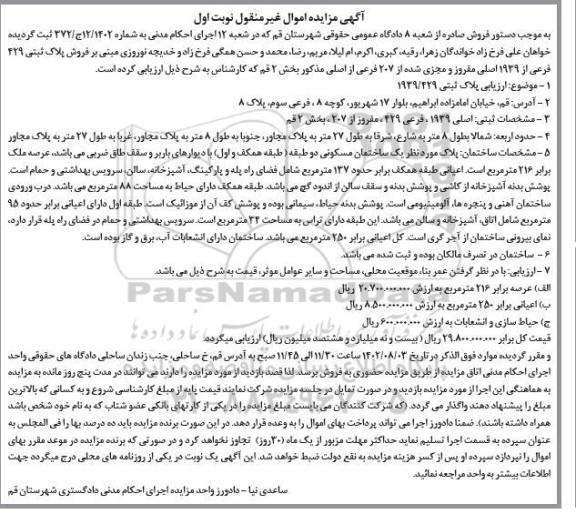 آگهی مزایده اموال غیر منقول نوبت اول
به موجب دستور فروش صادره از شعبه ۸ دادگاه عمومی حقوقی شهرستان قم که در شعبه ۱۲ اجرای احکام مدنی به شماره ۱۴۰۲/ج۱۲/۳۷۲ ثبت گردیده
خواهان علی فرخ زاد خواندگان زهرا، رقیه، کبری، اکرم، ام لیلا، مریم، رضا، محمد و حسن همگی فرخ زاد و خدیجه نوروزی مبنی بر فروش پلاک ثبتی ۴۲۹
فرعی از ۱۹۳۹ اصلی مفروز و مجزی شده از ۲۰۷ فرعی از اصلی مذکور بخش ۲ قم که کارشناس به شرح ذیل ارزیابی کرده است.
۱ – موضوع: ارزیابی پلاک ثبتی ۱۹۳۹/۴۲۹
۲ – آدرس: قم، خیابان امامزاده ابراهیم، بلوار ۱۷ شهریور، کوچه ۸ ، فرعی سوم، پلاک ۸
۳ – مشخصات ثبتی: اصلی ۱۹۳۹ ، فرعی ۴۲۹ ، مفروز از ۲۰۷ ، بخش ۲ قم
۴ – حدود اربعه: شمالا بطول ۸ متر به شارع، شرقا به طول ۲۷ متر به پلاک مجاور، جنوبا به طول ۸ متر به پلاک مجاور، غربا به طول ۲۷ متر به پلاک مجاور
۵ – مشخصات ساختمان: پلاک مورد نظر یک ساختمان مسکونی دو طبقه ( طبقه همکف و اول) با دیوارهای باربر و سقف طاق ضربی می باشد، عرصه ملک
برابر ۲۱۶ مترمربع است. اعیانی طبقه همکف برابر حدود ۱۳۷ مترمربع شامل فضای راه پله و پارکینگ، آشپزخانه، سالن، سرویس بهداشتی و حمام است.
پوشش بدنه آشپزخانه از کاشی و پوشش بدنه و سقف سالن از اندود گچ می باشد. طبقه همکف دارای حیاط به مساحت ۸۸ مترمربع می باشد. درب ورودی
ساختمان آهنی و پنجره ها، آلومینیومی است. پوشش بدنه حیاط، سیمانی بوده و پوشش کف آن از موزائیک است. طبقه اول دارای اعیانی برابر حدود ۹۵
مترمربع شامل اتاق، آشپزخانه و سالن می باشد. این طبقه دارای تراس به مساحت ۳۲ مترمربع است. سرویس بهداشتی و حمام در فضای راه پله قرار دارد،
نمای بیرونی ساختمان از آجر گری است. کل اعیانی برابر ۲۵۰ مترمربع می باشد. ساختمان دارای انشعابات آب، برق و گاز بوده است.
۶ – ساختمان در تصرف مالکان بوده و ثبت شده می باشد.
۷ – ارزیابی: با در نظر گرفتن عمر بنا، موقعیت محلی، مساحت و سایر عوامل موثر، قیمت به شرح ذیل می باشد.
الف) عرصه برابر ۲۱۶ مترمربع به ارزش ۲۰.۷۰۰.۰۰۰.۰۰۰ ریال
ب) اعیانی برابر ۲۵۰ مترمربع به ارزش ۸.۵۰۰.۰۰۰.۰۰۰ ریال
ج) حیاط سازی و انشعابات به ارزش ۶۰۰.۰۰۰.۰۰۰ ریال
قیمت کل برابر ۲۹.۸۰۰.۰۰۰.۰۰۰ ریال ( بیست و نه میلیارد و هشتصد میلیون ریال) ارزیابی میگردد.
و مقرر گردیده موارد فوق الذکر در تاریخ ۱۴۰۲/۰۸/۰۳ از ساعت ۱۱/۳۰ الی ۱۱/۴۵ صبح به آدرس قم، خ ساحلی، جنب زندان ساحلی دادگاه های حقوقی واحد
اجرای احکام مدنی اتاق مزایده از طریق مزایده حضوری به فروش برسد. لذا قصد بازدید از مورد مزایده را دارند می توانند در مدت پنج روز مانده به مزایده
به هماهنگی این اجرا از مورد مزایده بازدید و در صورت تمایل در جلسه مزایده شرکت نمایند قیمت پایه از مبلغ کارشناسی شروع و به کسانی که بالاترین
مبلغ را پیشنهاد دهند واگذار می گردد. (که شرکت کنندگان می بایست مبلغ مزایده را در یکی از کارتهای بانکی عضو شتاب که به نام خود شخص باشد
همراه داشته باشند). ضمنا دادورز اجرا می تواند پرداخت بهای اموال را به وعده قرار دهد. در این صورت برنده مزایده باید ده درصد بها را فی المجلس به
عنوان سپرده به قسمت اجرا تسلیم نماید حداکثر مهلت مزبور از یک ماه (۳۰روز) تجاوز نخواهد کرد و در صورتی که برنده مزایده در موعد مقرر بهای
اموال را نپردازد سپرده او پس از کسر هزینه مزایده به نفع دولت ضبط خواهد شد. این آگهی یک نوبت در یکی از روزنامه های محلی درج میگردد جهت
اطلاعات بیشتر به واحد مراجعه نمائید.
ساعدی نیا – دادورز واحد مزایده اجرای احکام مدنی دادگستری شهرستان قم